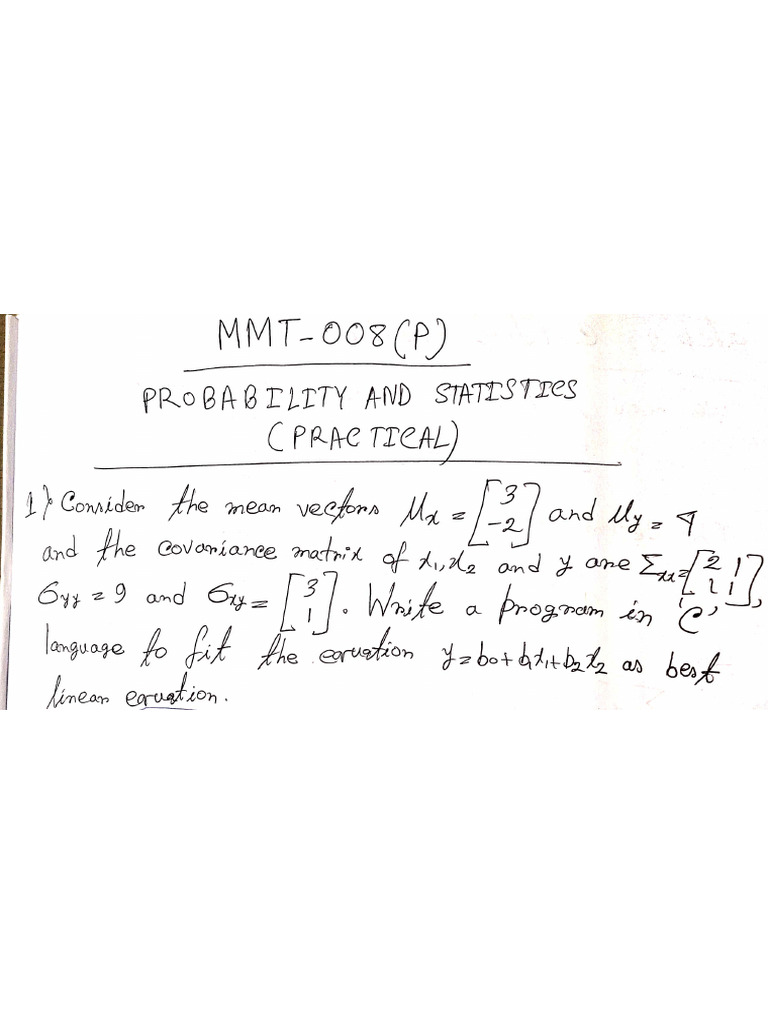 MMT-008(P)
PROBABILITY AND STATISTICS
(PRACTICAL)
1) Consider the mean vectors μx = [3 -2] and μy = 4
and the covariance matrix of x1, x2 and y are Σxx = [2 1 1 1],
σyy = 9 and σxy = [3 1]. Write a program in 'C'
language to fit the equation y = b0 + b1x1 + b2x2 as best
linear equation.